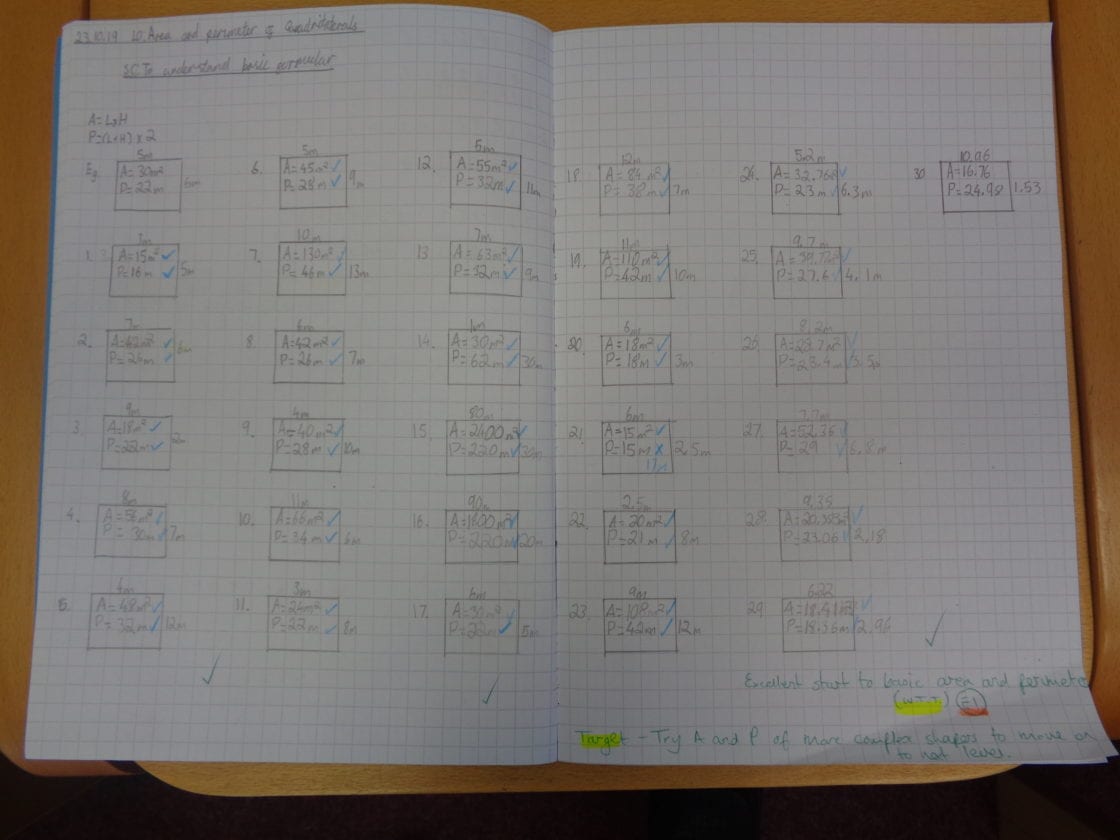 23.10.19 LO. Area and perimeter of Quadriterals
SC To understand basic formular
A= L×H
P=(L+H) × 2
Eg.
5m
A= 30m²
P= 22m
6m
1.
A=15m²
P=16m
5m
2.
7m
A=42m²
P= 26m
6m
3.
9m
A=18m²
P=22m
2m
4.
8m
A=56m²
P= 30m
7m
5.
4m
A= 48m²
P= 32m
12m
6.
5m
A=45m²
P= 28m
9m
7.
10m
A=130m²
P= 46m
13m
8.
6m
A=42m²
P= 26m
7m
9.
4m
A=40m²
P=28m
10m
10.
11m
A=66m²
P=34m
6m
11.
3m
A=24m²
P=22m
8m
12.
5m
A=55m²
P= 32m
11m
13
7m
A= 63m²
P=32m
9m
14.
1m
A= 30m²
P= 62m
30m
15.
80m
A= 2400m²
P=220m
30m
16.
90m
A=1800m²
P=220m
20m
17.
6m
A=30m²
P=22m
5m
18.
12m
A= 84m²
P= 38m
7m
19.
11m
A=110m²
P=42m
10m
20.
6m
A=18m²
P=18m
3m
21.
6m
A=15m²
P=15m x
2.5m
17m
22.
2.5m
A=20m²
P=21m
8m
23.
9m
A=108m²
P=42m
12m
5.2m
A=32.76m²
P=23m
6.3m
25.
9.7m
P=27.6
4.1m
26.
8.2m
A=28.7m²
P=23.4m
3.5m
27.
7.7m
A=52.36
P=29
6.8m
28.
9.35
P=23.06
2.18
29.
6.22
P=18.36m
2.96
30
10.96
A=16.76
P=24.98
1.53
Excellent start to basic area and perimeter
(W.T.T.) E1
Target - Try A and P of more complex shapes to move on
to next level.